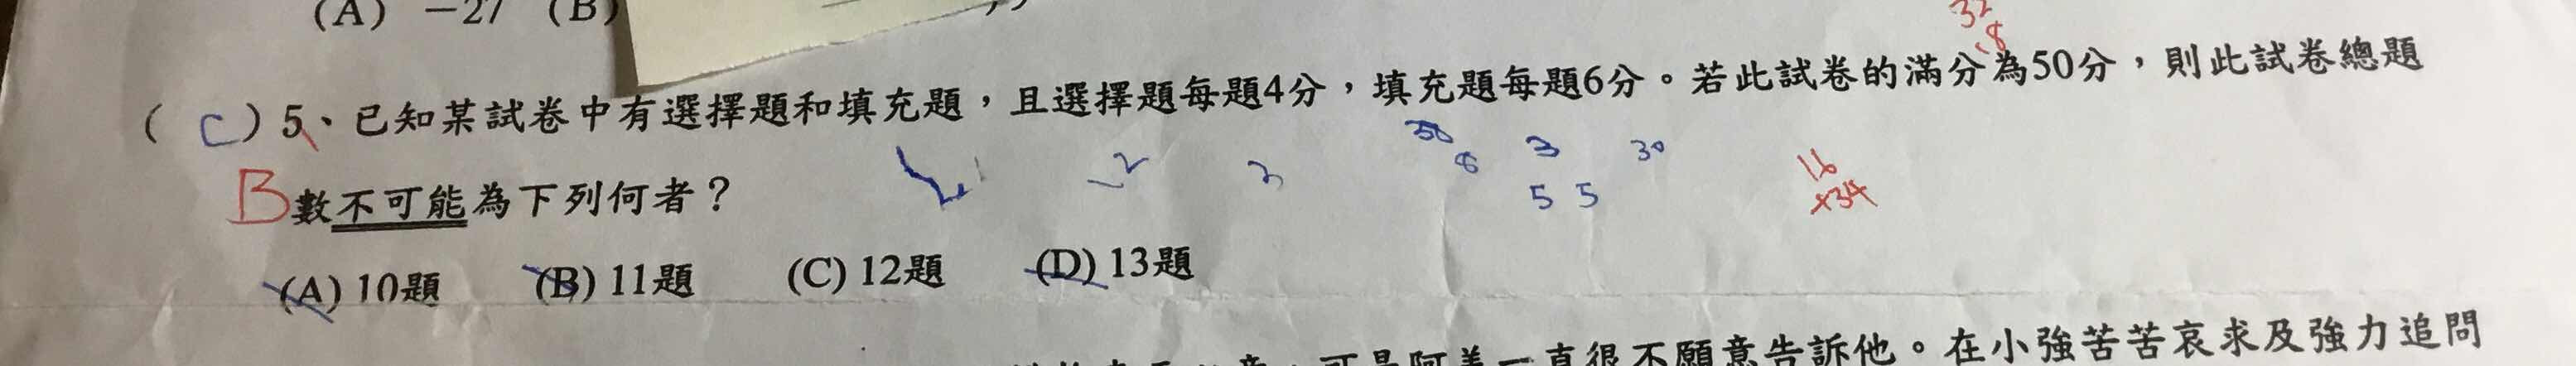 (A) －27 (B)
32
18
( C ) 5、已知某試卷中有選擇題和填充題，且選擇題每題4分，填充題每題6分。若此試卷的滿分為50分，則此試卷總題
50
8
3
30
5 5
16
+34
B 數不可能為下列何者？
2
(A) 10題 (B) 11題 (C) 12題 (D) 13題
一直很不願意告訴他。在小強苦苦哀求及強力追問